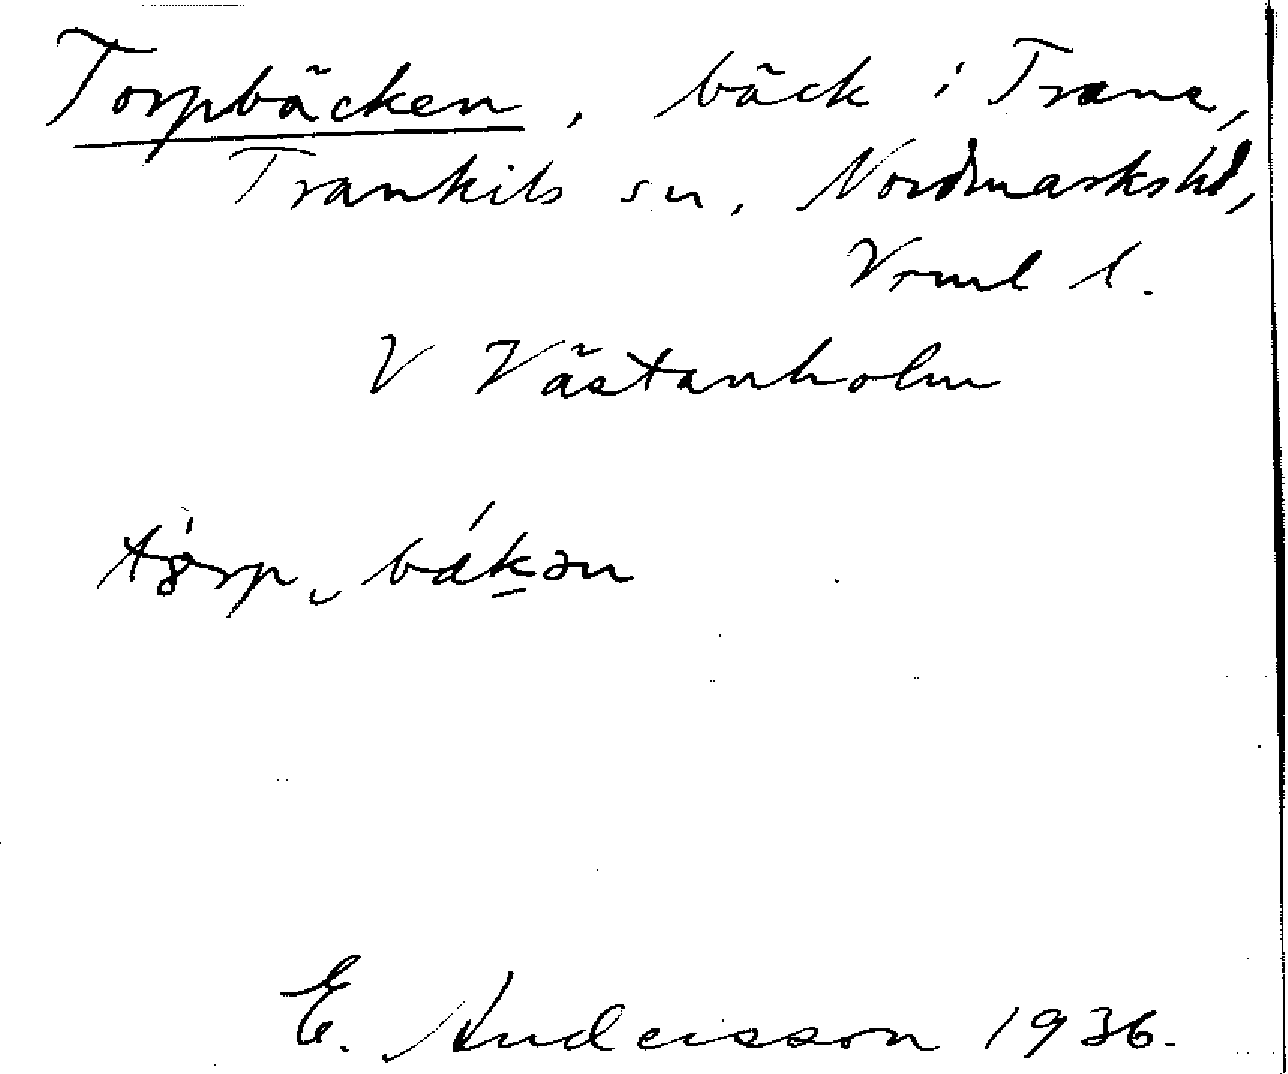 Torpbäcken, bäck i Trane,
Trankils sn, Nordmarkshd,
Vrml l.
V Västanholm
bákən
E. Andersson 1936.